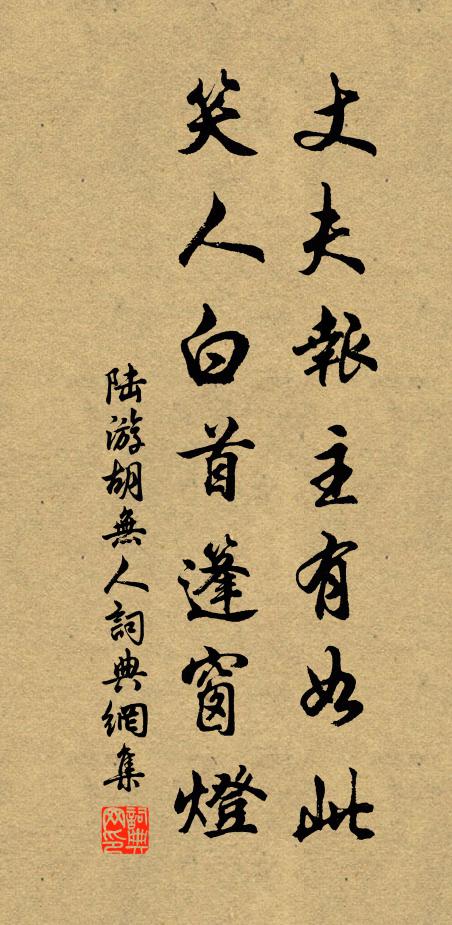 丈夫報主有如此
笑人白首篷窗燈
陆游胡無人詞典網集
詞典网印